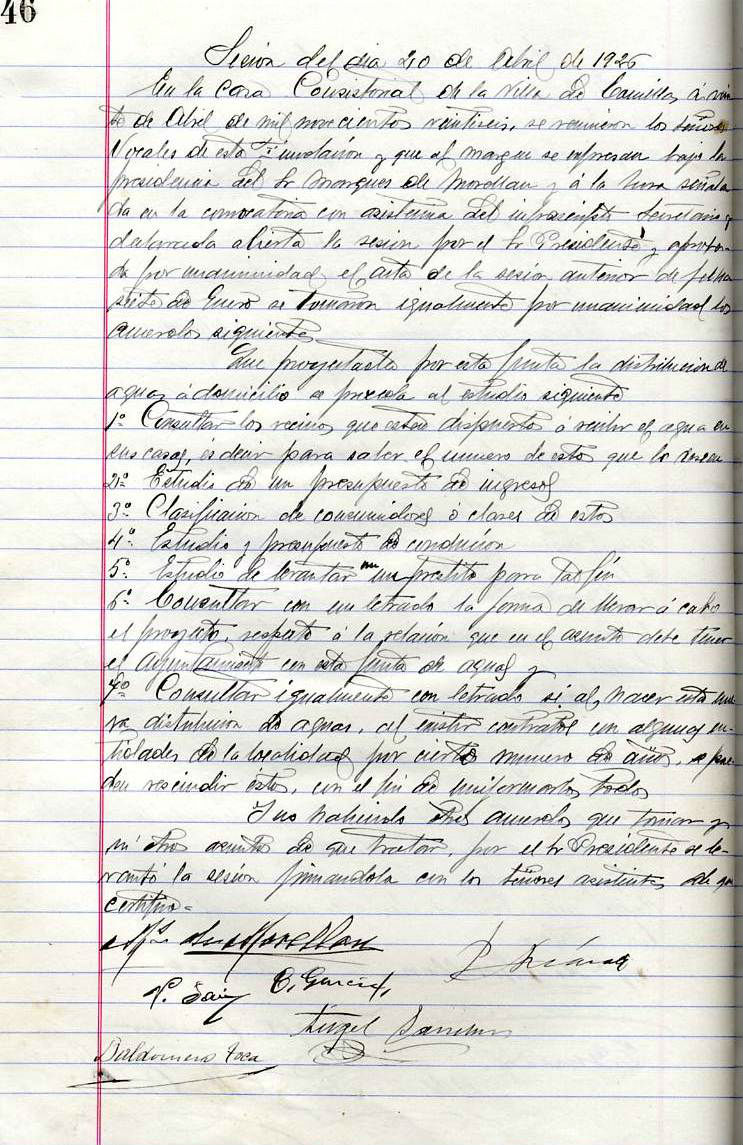 46
Sesión del dia 20 de Abril de 1926
En la Casa Consistorial de la Villa de Comillas á vein
te de Abril de mil novecientos veintiseis, se reunieron los señores
Vocales de esta y que al margen se expresan bajo la
presidencia del Sr Marques de Movellan y á la hora señala
da en la convocatoria con asistencia del infrascripto Secretario y
declarada abierta la sesión por el Sr Presidente y aproba-
da por unanimidad el acta de la sesión anterior de fecha
siete de Enero se tomaron igualmente por unanimidad los
acuerdos siguientes
Que proyectada por esta Junta la distribucion de
aguas á domicilio se proceda al estudio siguiente
1º Consultar los vecinos que esten dispuestos a recibir el agua en
sus casas, es decir para saber el numero de estos que lo deseen
2º Estudio de un presupuesto de ingresos
3º Clasificacion de consumidores ó clases de estos
4º Estudio y presupuesto de conducion
5º Estudio de levantar un prestito para tal fin
6º Consultar con un letrado la forma de llevar á cabo
el proyecto, respecto á la relación que en el asunto debe tener
el Ayuntamiento con esta Junta de aguas y
7º Consultar igualmente con letrado si al hacer esta nue
va distribucion de aguas, al existir contratos con algunas en-
tidades de la localidad por cierto numero de años, se pue-
den rescindir estos, con el fin de uniformarlos todos
Y no habiendo mas acuerdos que tomar y
ni otros asuntos de que tratar, por el Sr Presidente se le-
vantó la sesión firmandola con los señores asistentes de que
certifico=
Mqs de Movellan
P. Saiz G. García,
Angel Sanchez
Baldomero Toca